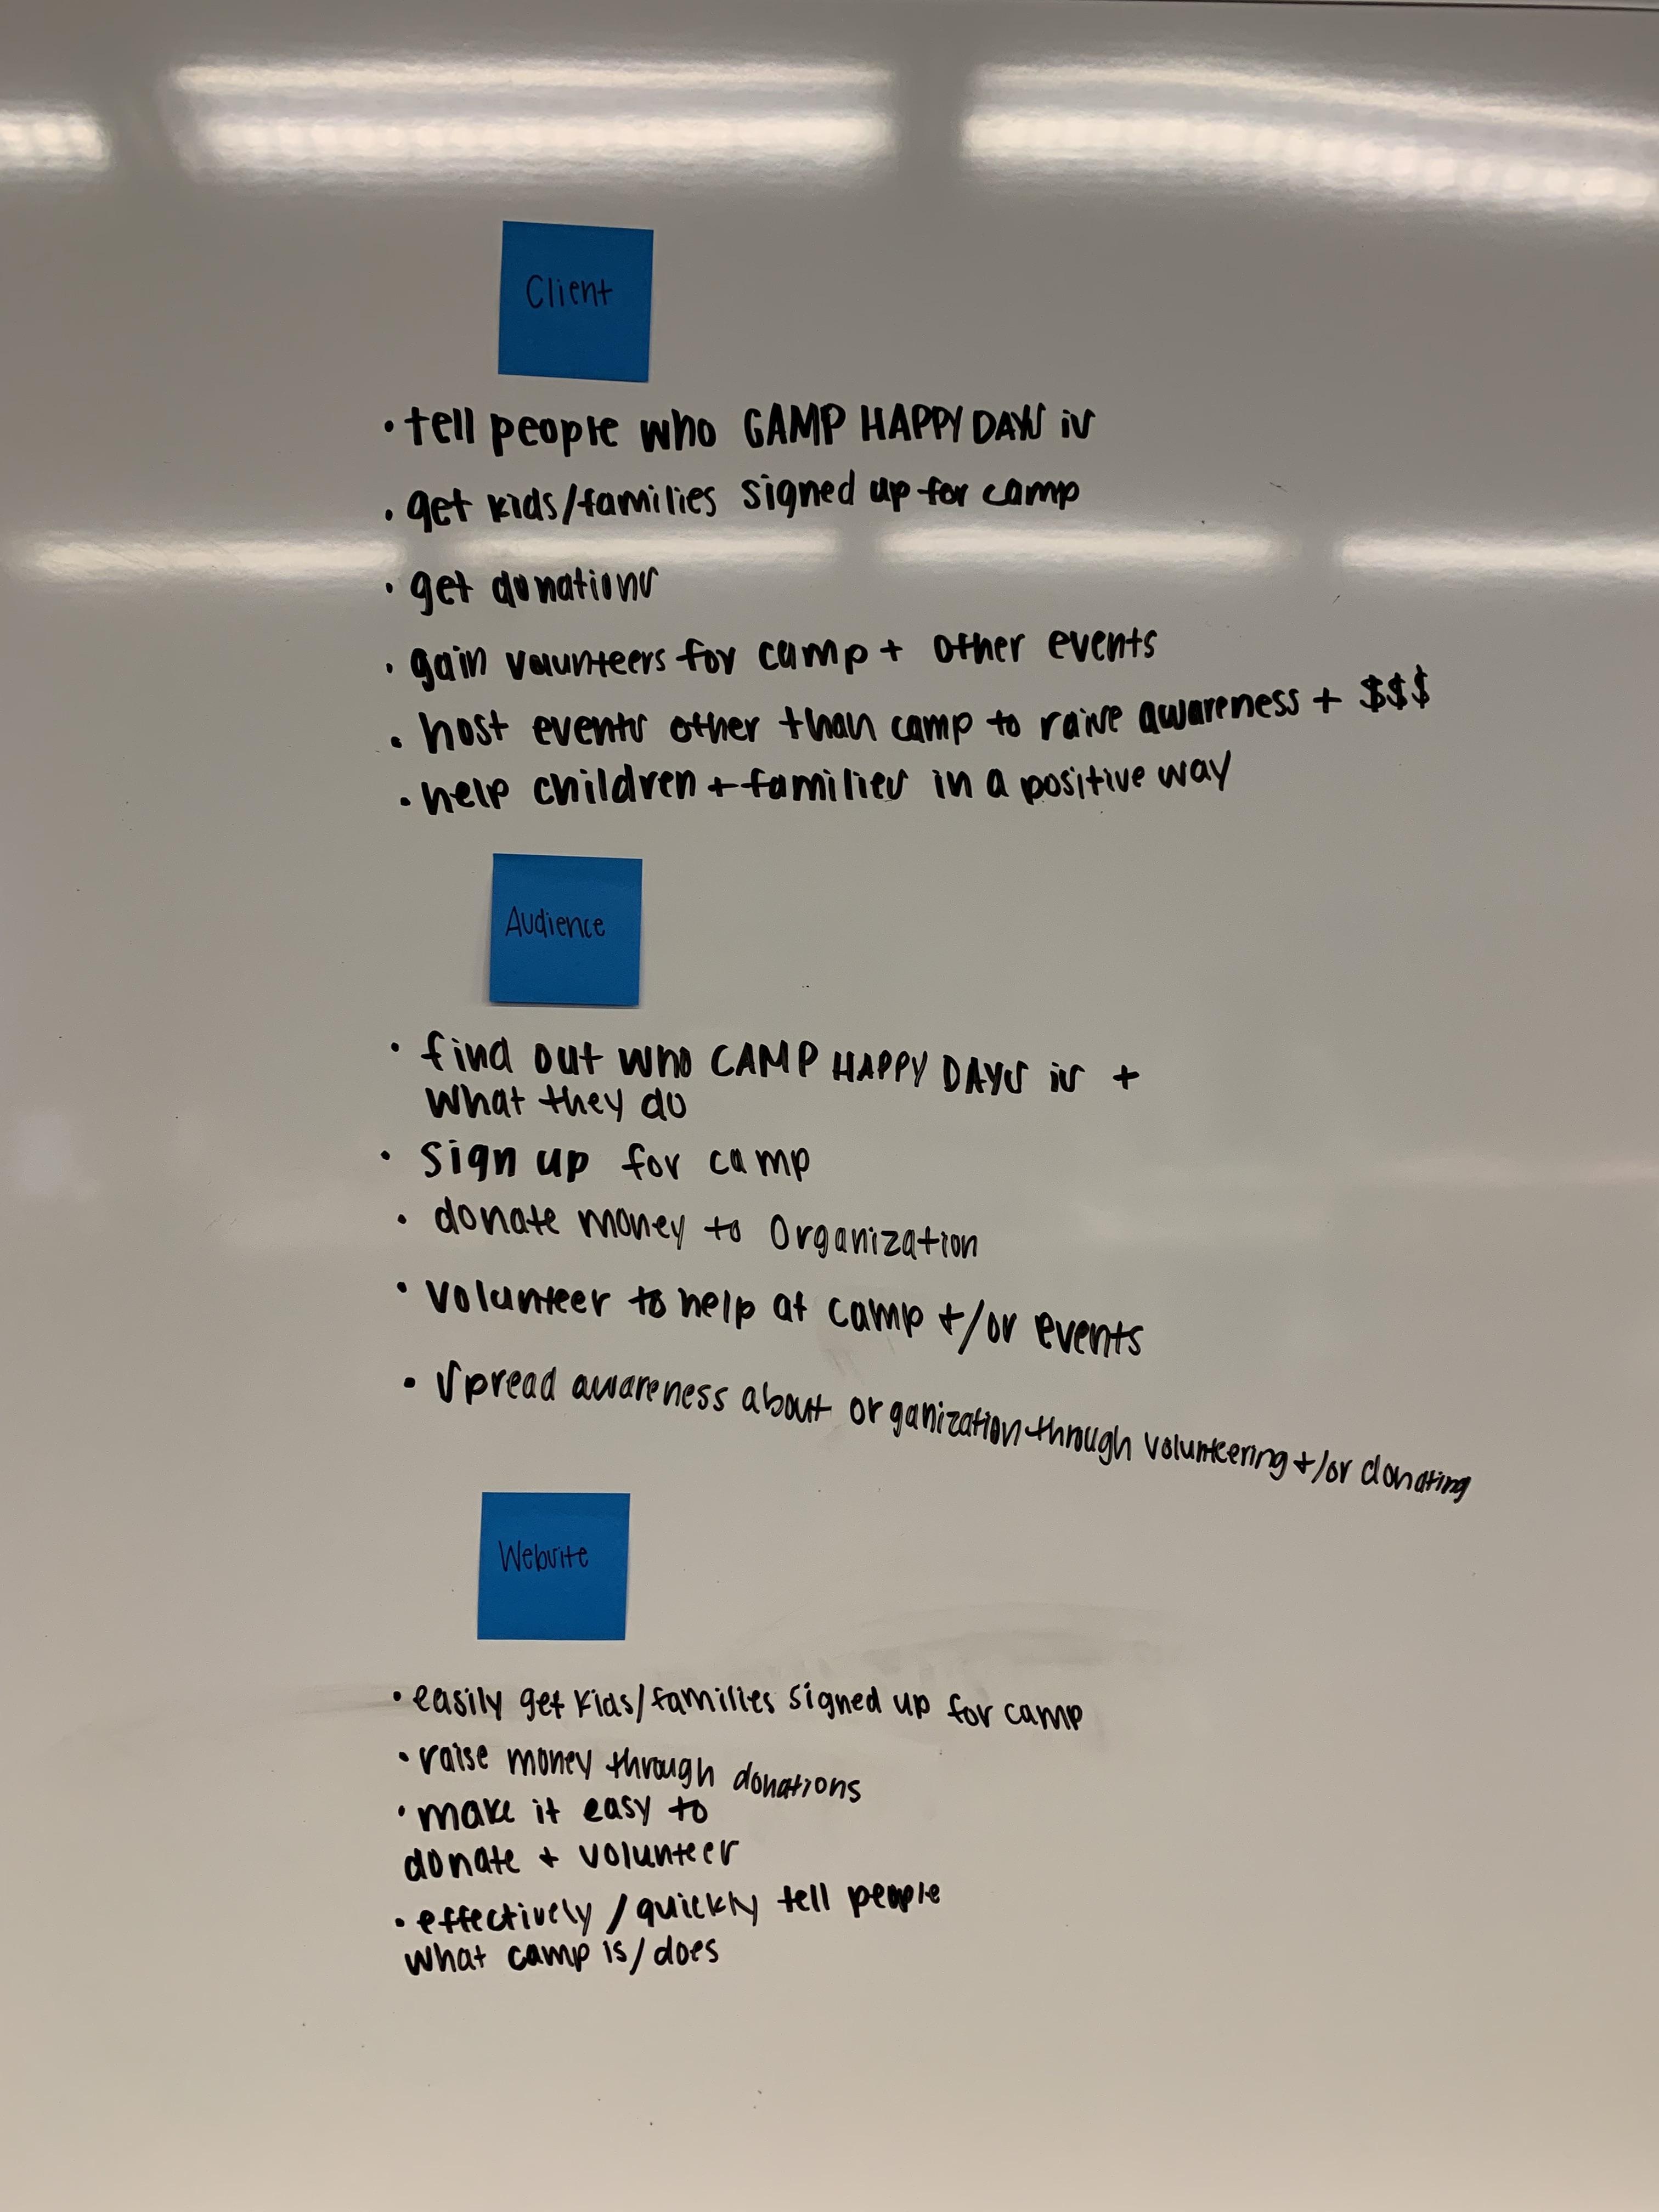 Client
• tell people who CAMP HAPPY DAYS is
• get kids/families signed up for camp
• get donations
• gain volunteers for camp + other events
• host events other than camp to raise awareness + $$$
• help children + families in a positive way
Audience
• find out who CAMP HAPPY DAYS is +
what they do
• sign up for camp
• donate money to Organization
• volunteer to help at camp +/or events
• spread awareness about organization through volunteering +/or donating
Website
• easily get kids/families signed up for camp
• raise money through donations
• make it easy to
donate + volunteer
• effectively/quickly tell people
what camp is/does